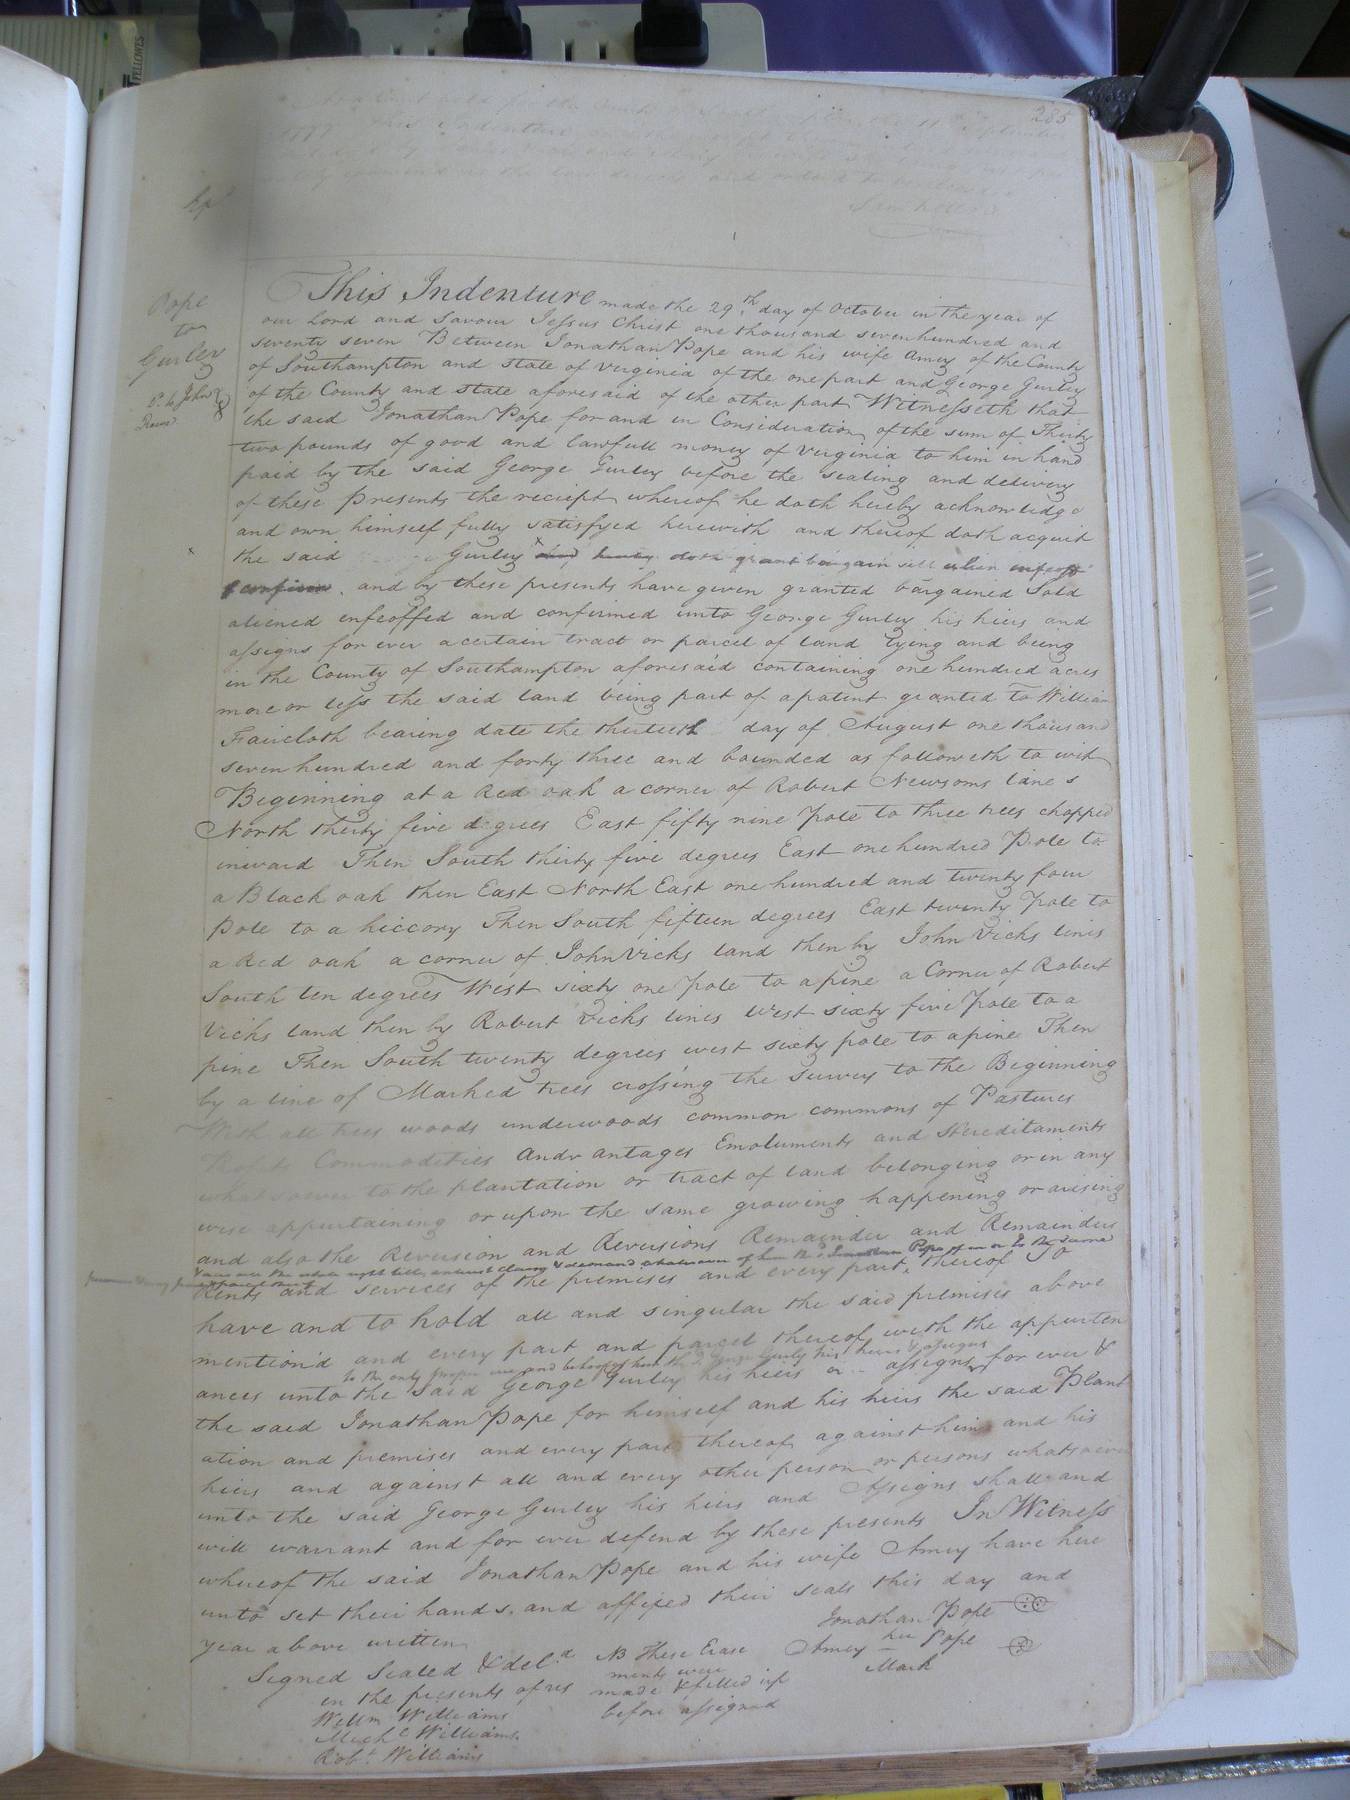 FELLOWES
285
Pope
to
Gurley
This Indenture made the 29th day of October in the year of
our Lord and Savour Jessus Christ one thousand sevenhundred and
seventy seven Between Jonathan Pope and his wife Amey of the County
of Southampton and State of Virginia of the one part and George Gurley
of the County and State aforesaid of the other part Witnesseth that
the said Jonathan Pope for and in Consideration of the sum of Thirty
two pounds of good and lawfull money of Virginia to him in hand
paid by the said George Gurley before the sealing and delivery
of these Presents the receipt whereof he doth hereby acknowledge
and own himself fully satisfyed herewith and thereof doth acquit
the said Gurley doth grant bargain sell alien infeoff
& confirm and by these presents have given granted bargained Sold
aliened enfeoffed and confirmed unto George Gurley his heirs and
assigns for ever a certain tract or parcel of land lying and being
in the County of Southampton aforesaid containing one hundred acres
more or less the said land being part of a patent granted to William
Faircloth bearing date the thirtieth day of August one thousand
seven hundred and forty three and bounded as followeth to wit
Beginning at a Red oak a corner of Robert Newsoms lines
North thirty five degrees East fifty nine Pole to three trees chopped
inward Then South thirty five degrees East one hundred Pole to
a Black oak then East North East one hundred and twenty four
Pole to a hiccory Then South fifteen degrees East twenty Pole to
a Red oak a corner of John Vicks land then by John Vicks lines
South ten degrees West sixty one Pole to a pine a Corner of Robert
Vicks land then by Robert Vicks lines West sixty five Pole to a
pine Then South twenty degrees west sixty pole to a pine Then
by a line of Marked trees crossing the survey to the Beginning
With all trees woods underwoods common commons of Pastures
Profits Commodities Andvantages Emoluments and Hereditaments
whatsoever to the plantation or tract of land belonging or in any
wise appurtaining or upon the same growing happening or arising
and also the Reversion and Reversions Remainder and Remainders
also all the whole right title interest claim & demand whatsoever of him the sd Jonathan Pope of in or to the same
Rents and services of the premises and every part thereof To
have and to hold all and singular the said premises above
mention'd and every part and parcel thereof with the appurten
to the only proper use and behoof of him the sd George Gurley his heirs & assigns
ances unto the said George Gurley his heirs or assigns for ever &
the said Jonathan Pope for himself and his heirs the said Plant
ation and premises and every part thereof against him and his
heirs and against all and every other person or persons whatsoever
unto the said George Gurley his heirs and Assigns shall and
will warrant and for ever defend by these presents In Witness
whereof the said Jonathan Pope and his wife Amey have here
unto set their hands and affixed their seals this day and
year above written
Jonathan Pope
Amey her Pope
Mark
Signed Sealed & deld
in the presents of us
Willm Williams
Michl Williams
Robt Williams
NB These Erase
ments were
made & filled up
before assigned